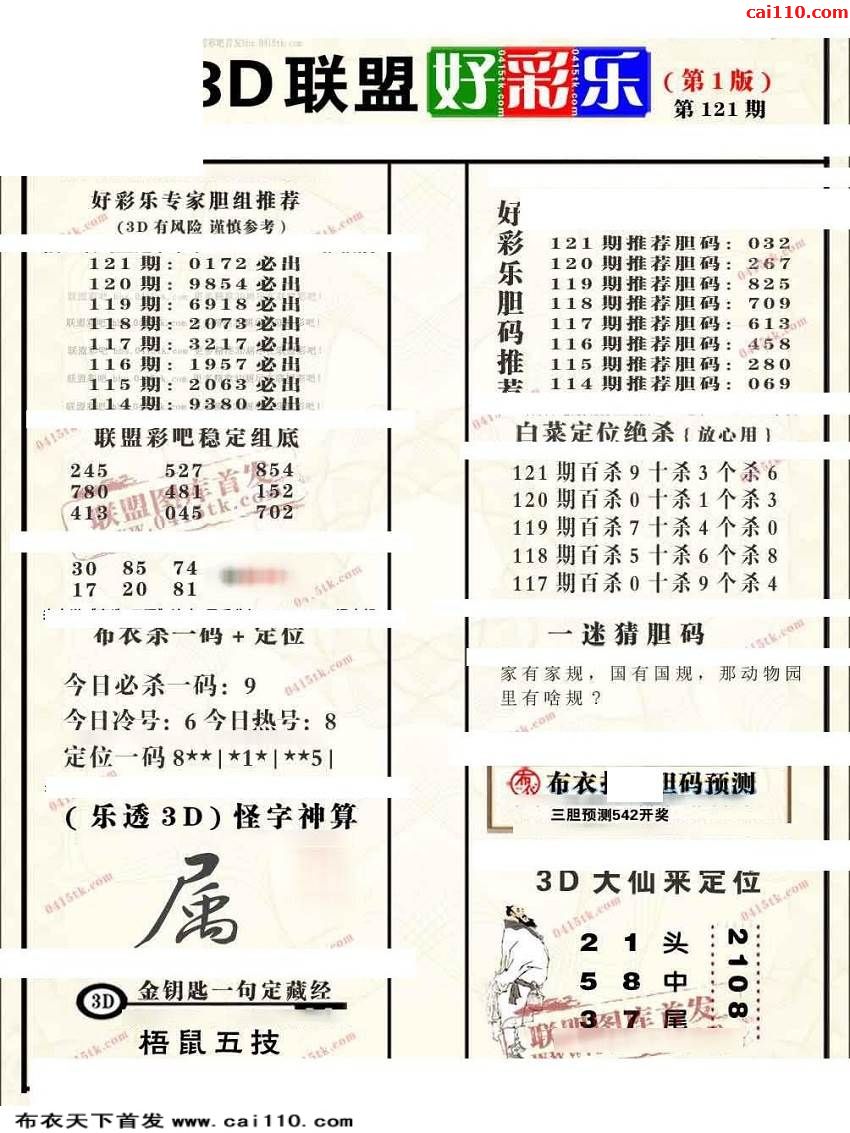 cai110.com
3D联盟好彩乐
(第1版)
第121期
好彩乐专家胆组推荐
(3D有风险 谨慎参考)
121期: 0172必出
120期: 9854必出
119期: 6918必出
118期: 2073必出
117期: 3217必出
116期: 1957必出
115期: 2063必出
114期: 9380必出
联盟彩吧稳定组底
245 527 854
780 481 152
413 045 702
30 85 74
17 20 81
布衣杀一码+定位
今日必杀一码: 9
今日冷号: 6 今日热号: 8
定位一码 8**|*1*|**5|
(乐透3D)怪字神算
属
3D 金钥匙一句定藏经
梧鼠五技
好彩乐胆码推荐
121期推荐胆码: 032
120期推荐胆码: 267
119期推荐胆码: 825
118期推荐胆码: 709
117期推荐胆码: 613
116期推荐胆码: 458
115期推荐胆码: 280
114期推荐胆码: 069
白菜定位绝杀{放心用}
121期百杀9十杀3个杀6
120期百杀0十杀1个杀3
119期百杀7十杀4个杀0
118期百杀5十杀6个杀8
117期百杀0十杀9个杀4
一迷猜胆码
家有家规，国有国规，那动物园
里有啥规？
布衣 胆码预测
三胆预测542开奖
3D大仙来定位
2 1 头
5 8 中
3 7 尾
2108
联盟图库首发
www.0415tk.com
布衣天下首发 www.cai110.com